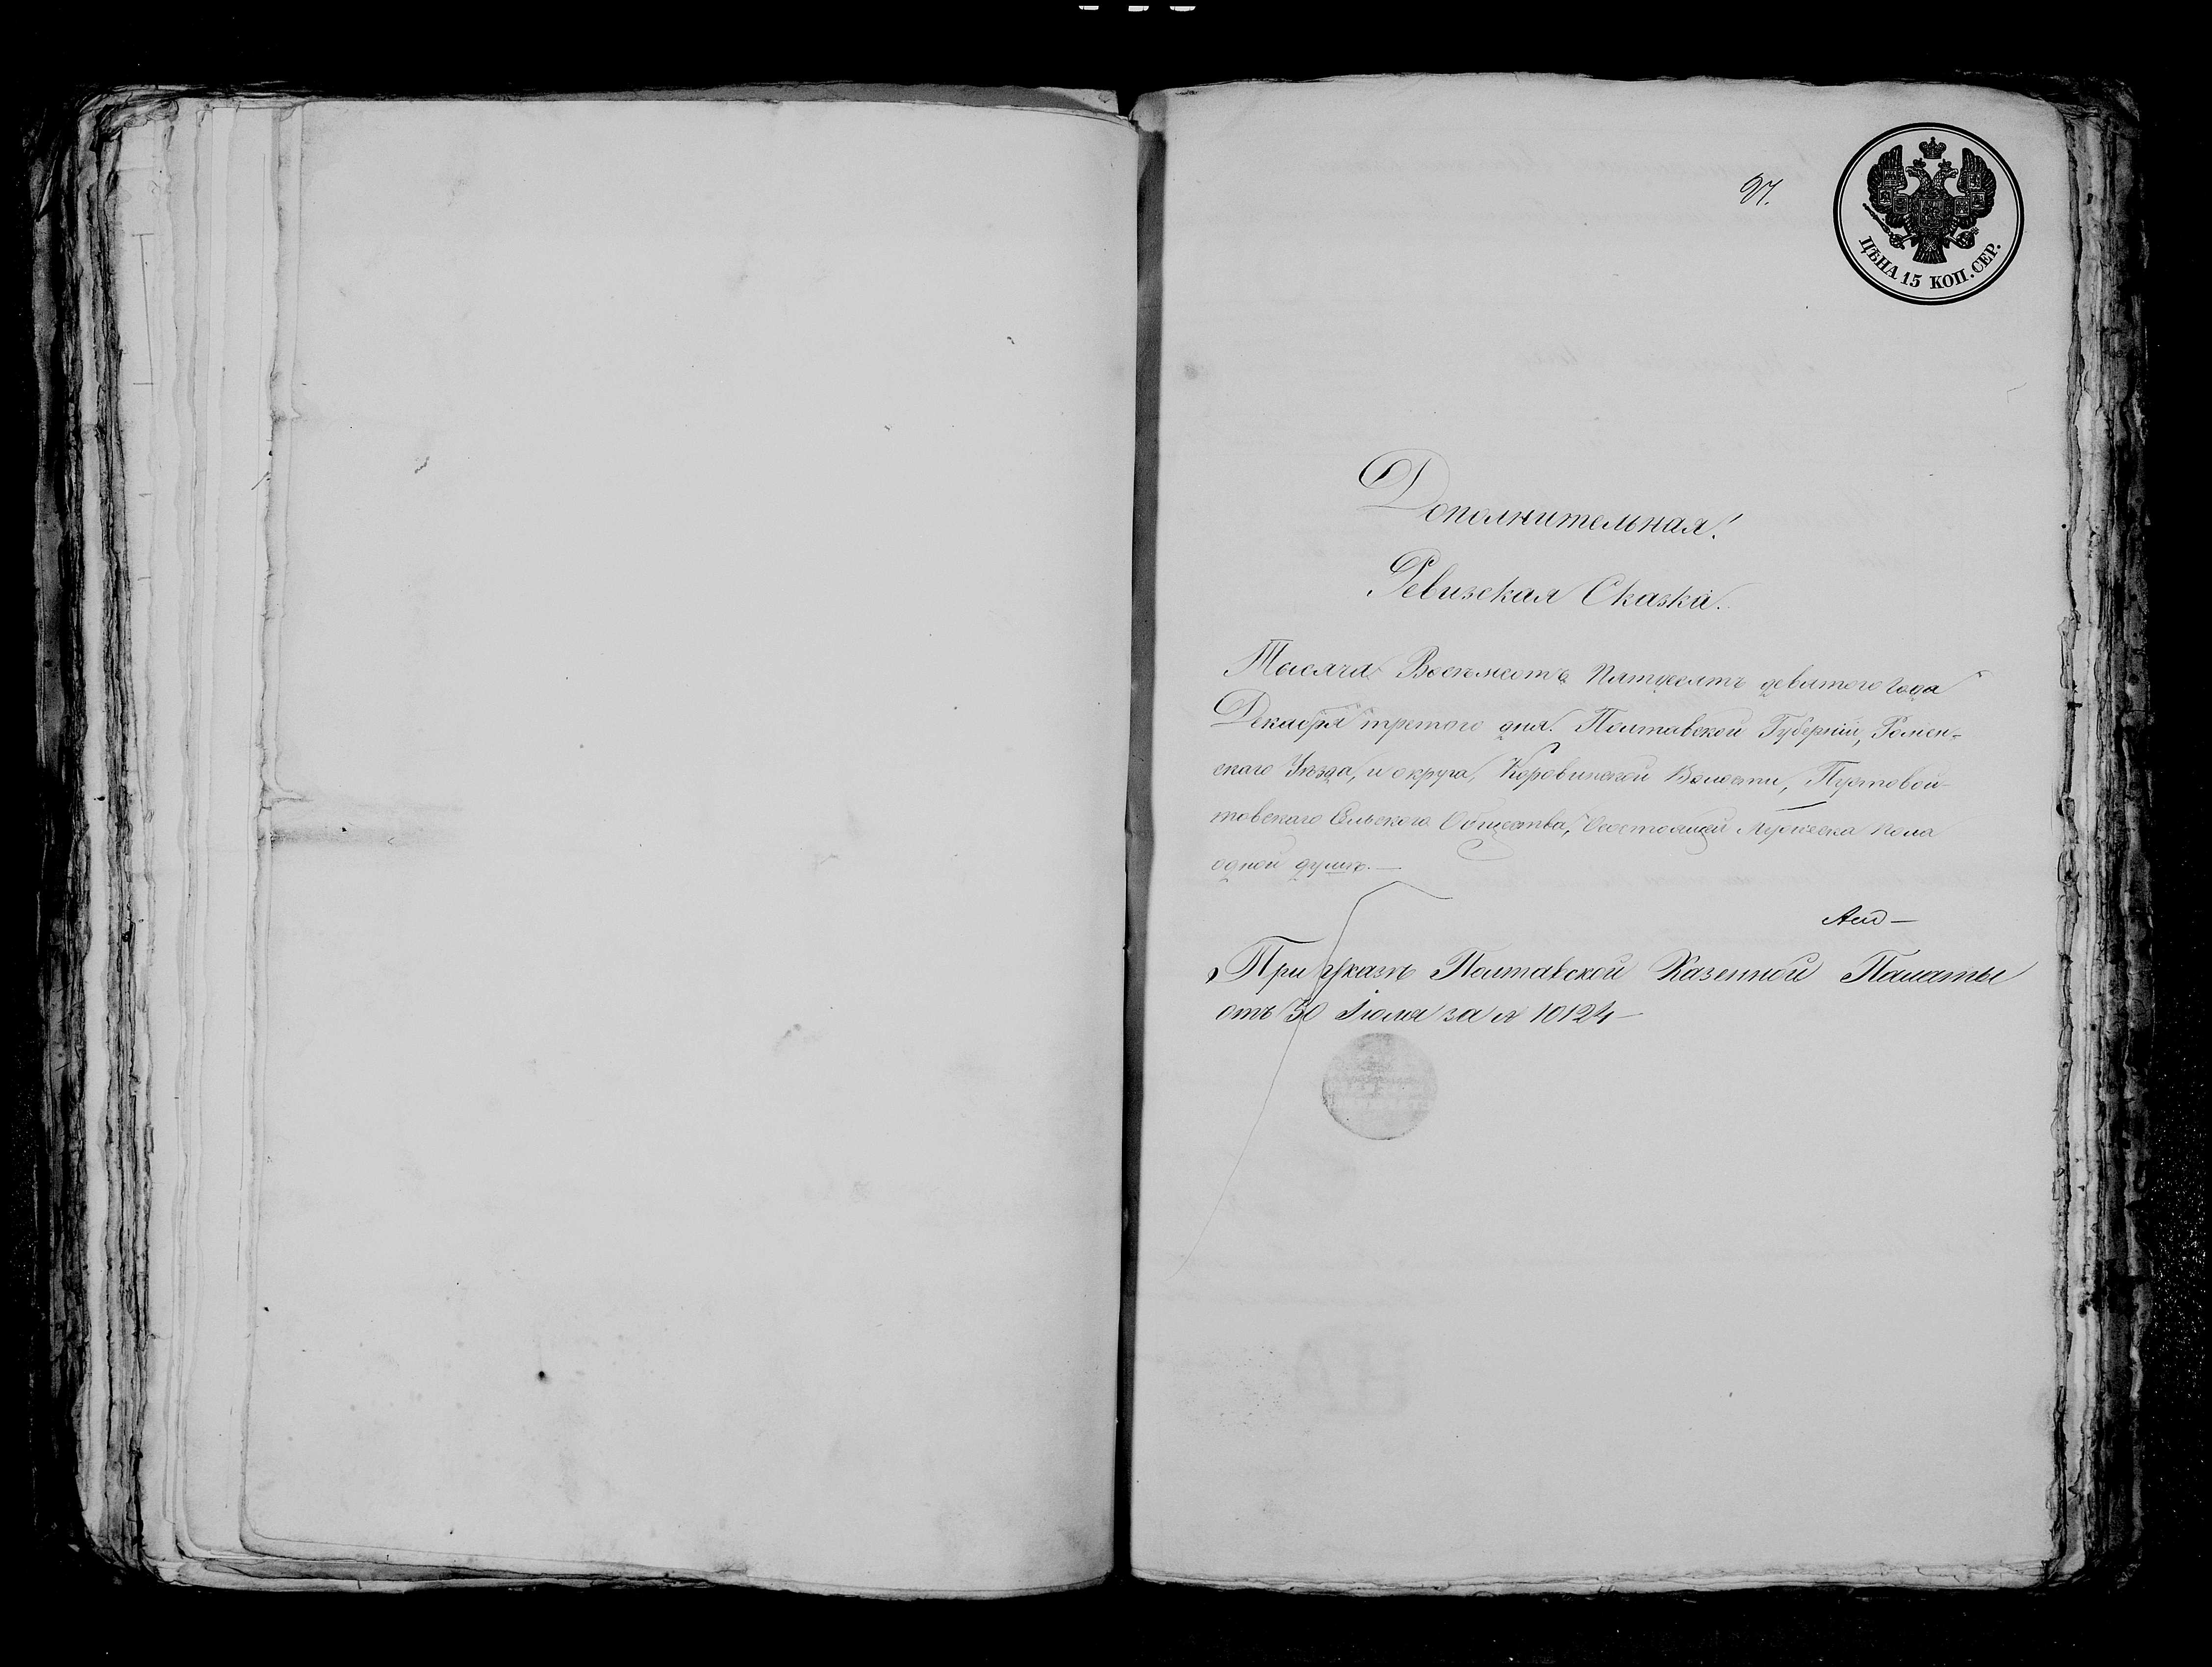 97.
ЦѢНА 15 КОП. СЕР.
Дополнительная
Ревизская Сказка.
Тысяча Восемсотъ Пятдесятъ девятого Года
Декабря третого дня. Полтавской Губерніи, Ромен-
скаго Уѣзда, и округа, Коровинской Волости, Пустовой-
товскаго Сельского Общества, Осостоящей Мужеска пола
одной душѣ.—
При указѣ Полтавской Казенной Палаты
отъ 30 Іюля за № 10124—